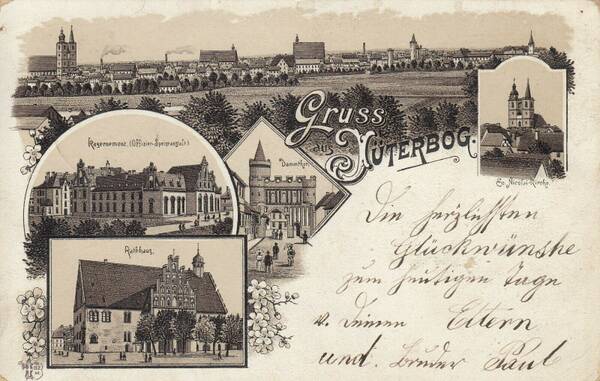 Gruss
aus
JÜTERBOG.
Dammthor.
St. Nicolai-Kirche.
(Offizier-Speiseanstalt.)
Rathhaus.
Die herzlichsten
Glückwünshe
zum heutigen Tage
v. Deinen Eltern
und. Bruder Paul